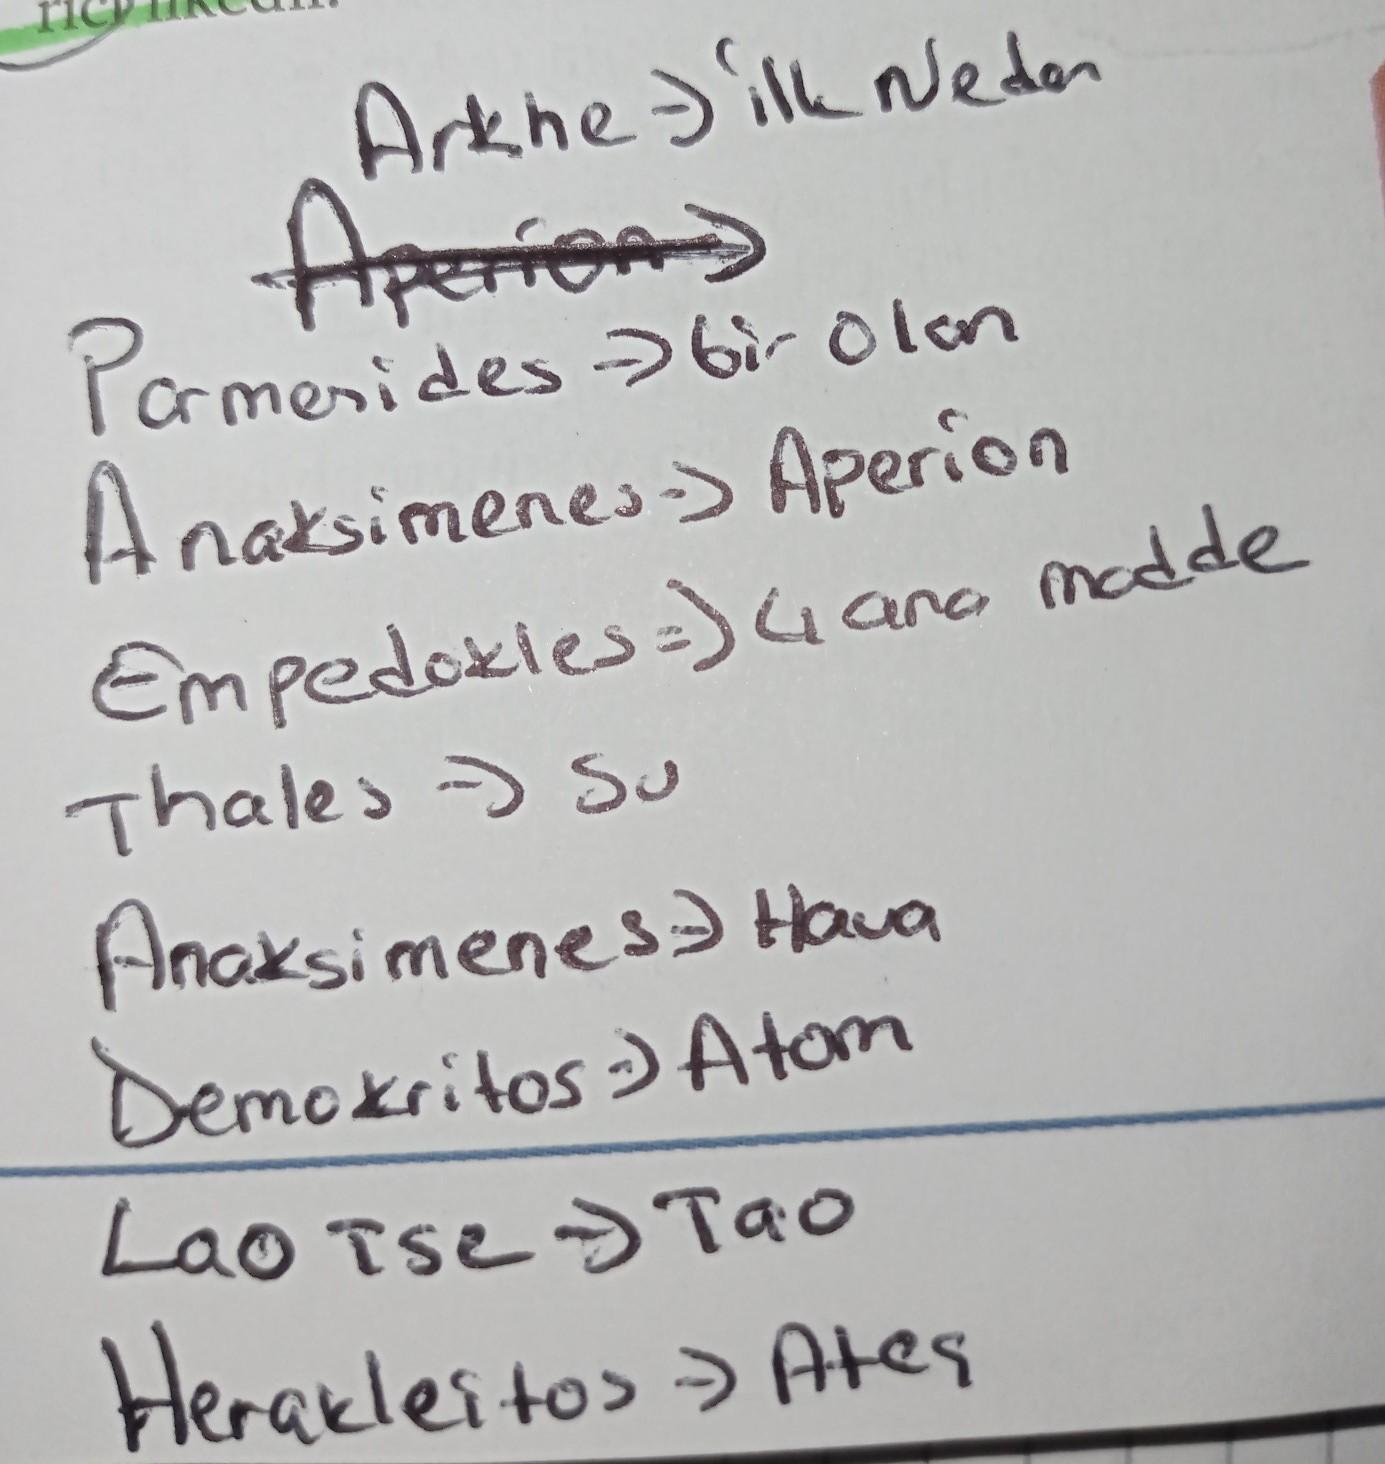 Arkhe → ilk Neden
Aperion →
Parmenides → bir olan
Anaksimenes → Aperion
Empedokles → 4 ana madde
Thales → Su
Anaksimenes → Hava
Demokritos → Atom
Lao Tse → Tao
Herakleitos → Ateş